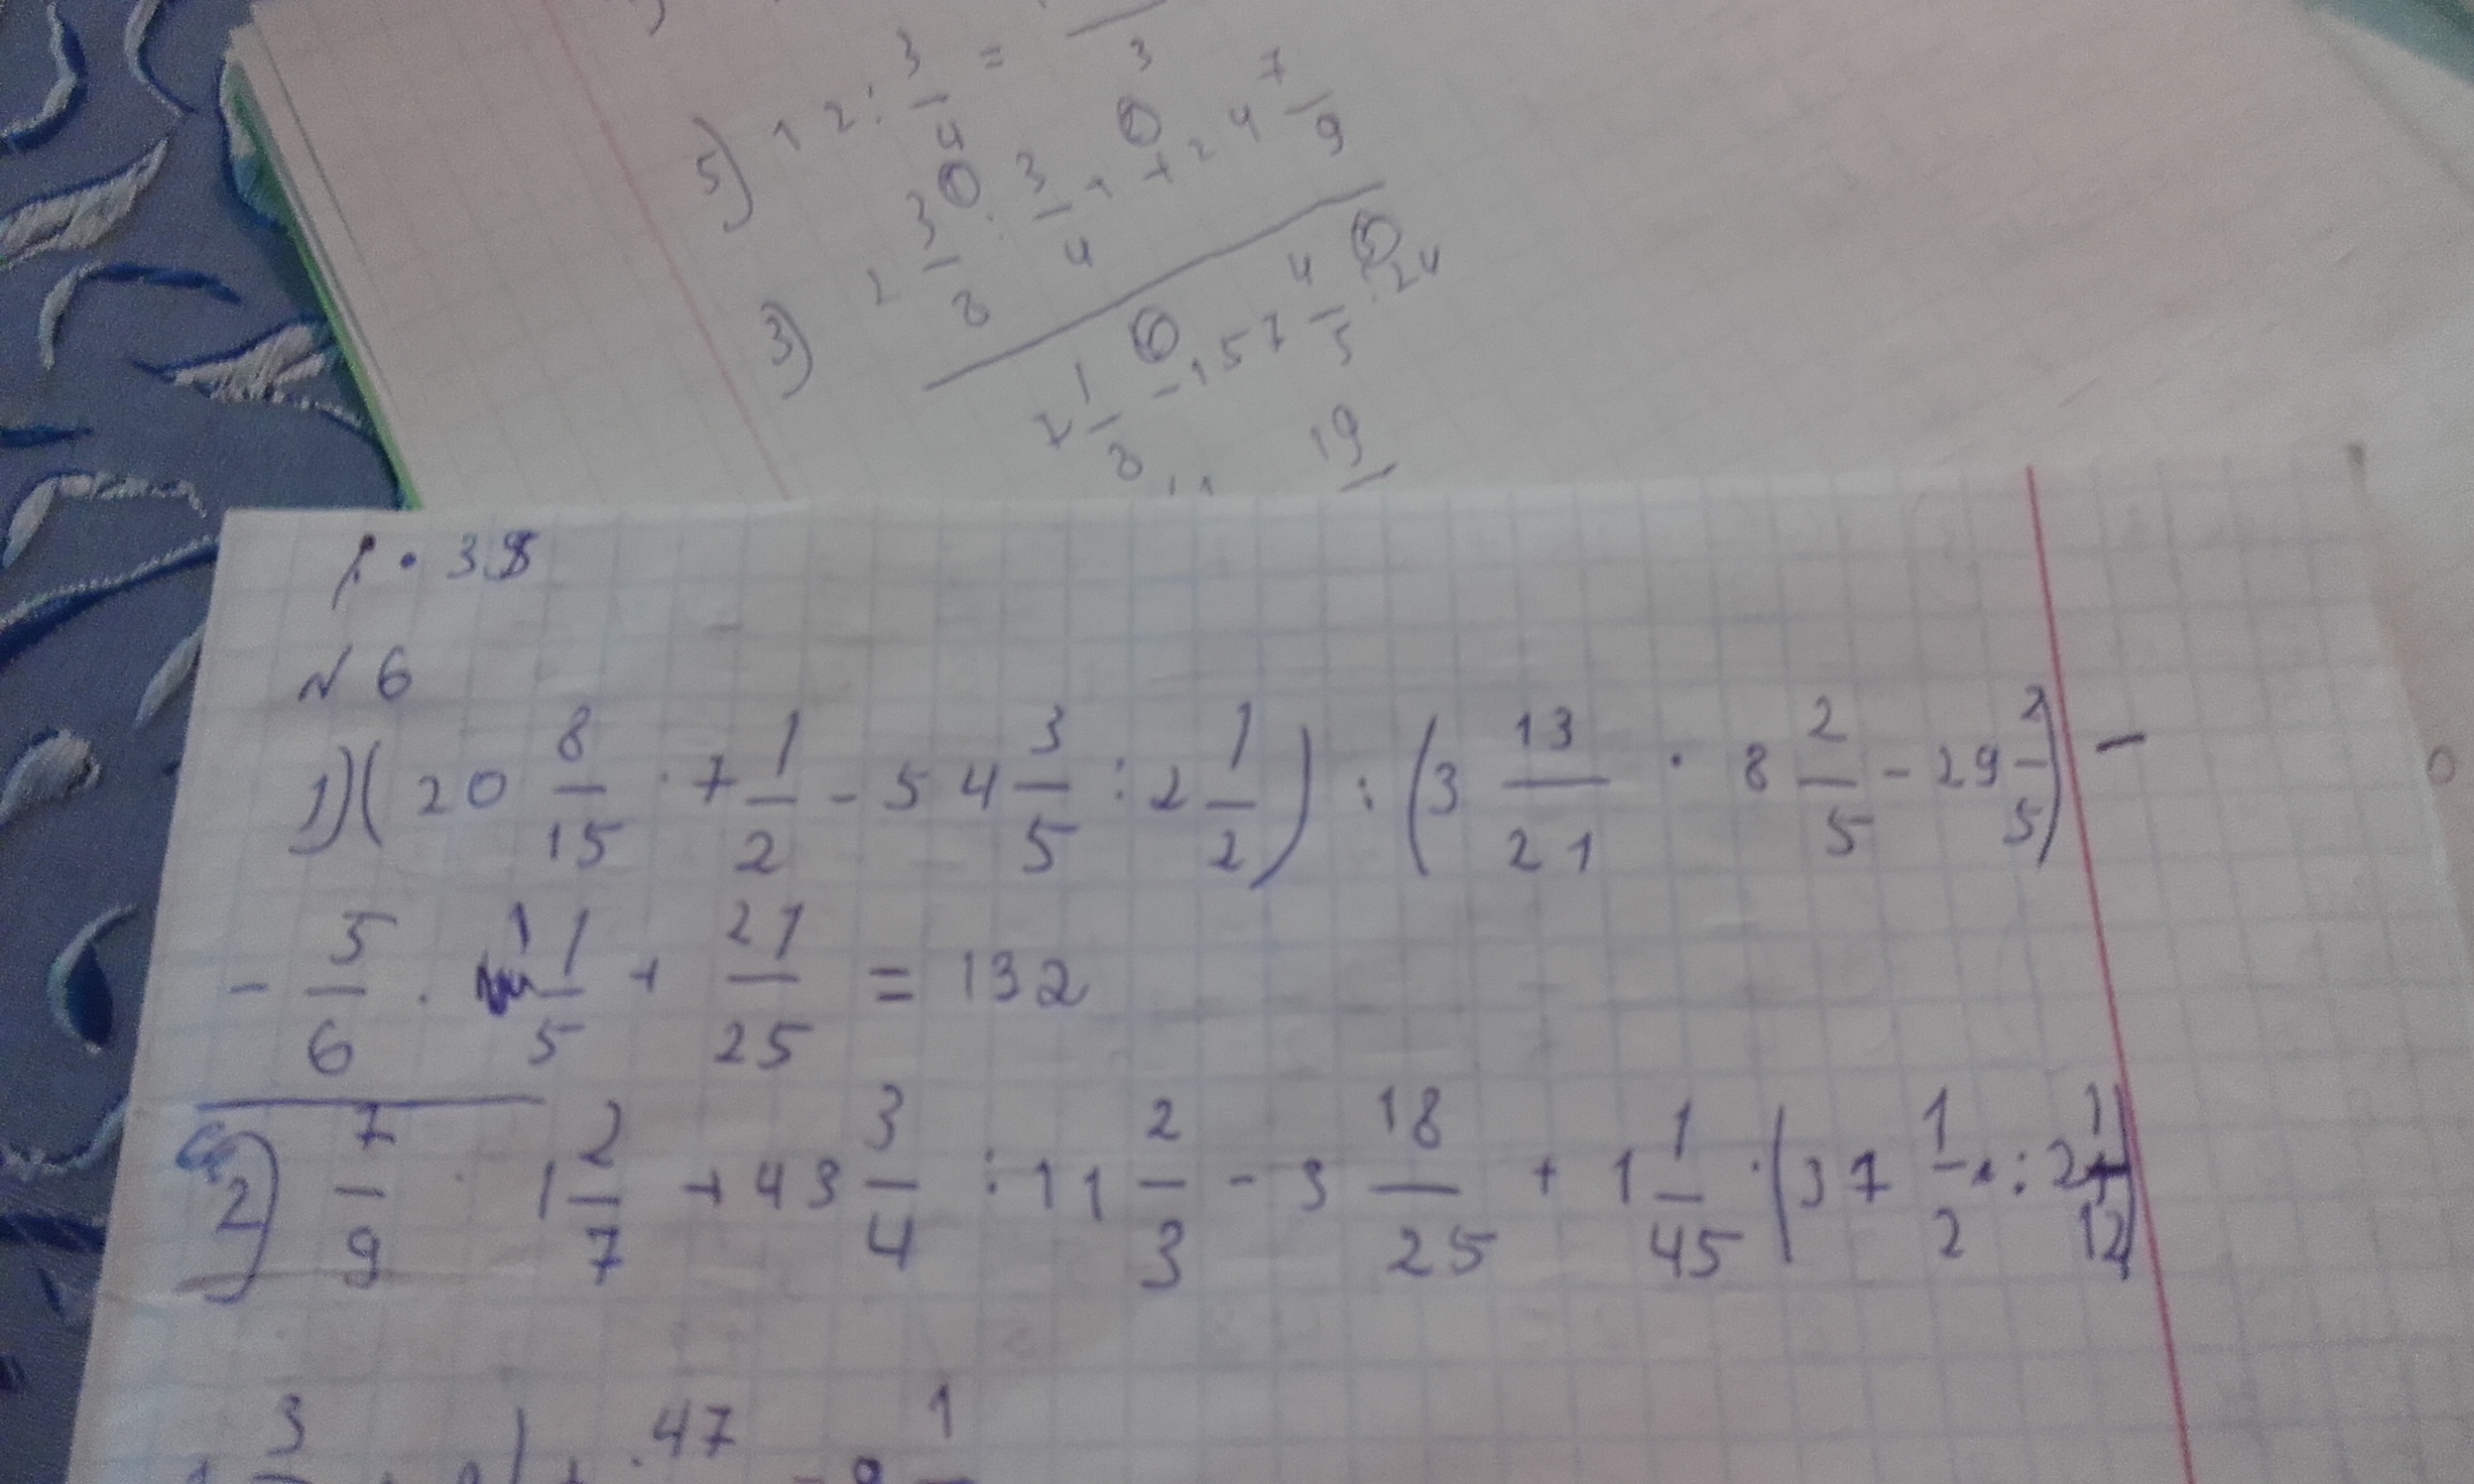 5) 12 : 3/4 =
3
3) 2 3/8 : 3/4 + 24 7/9
7 1/8 - 157 4/5 : 24
19
р. 38
№ 6
1) (20 8/15 · 7 1/2 - 54 3/5 : 2 1/2) : (3 13/21 · 8 2/5 - 29 2/5) -
- 5/6 · 1 1/5 + 21/25 = 132
2) 7/9 · 1 2/7 + 43 3/4 : 11 2/3 - 3 18/25 + 1 1/45 · (37 1/2 : 2 1/12)
3 47 1